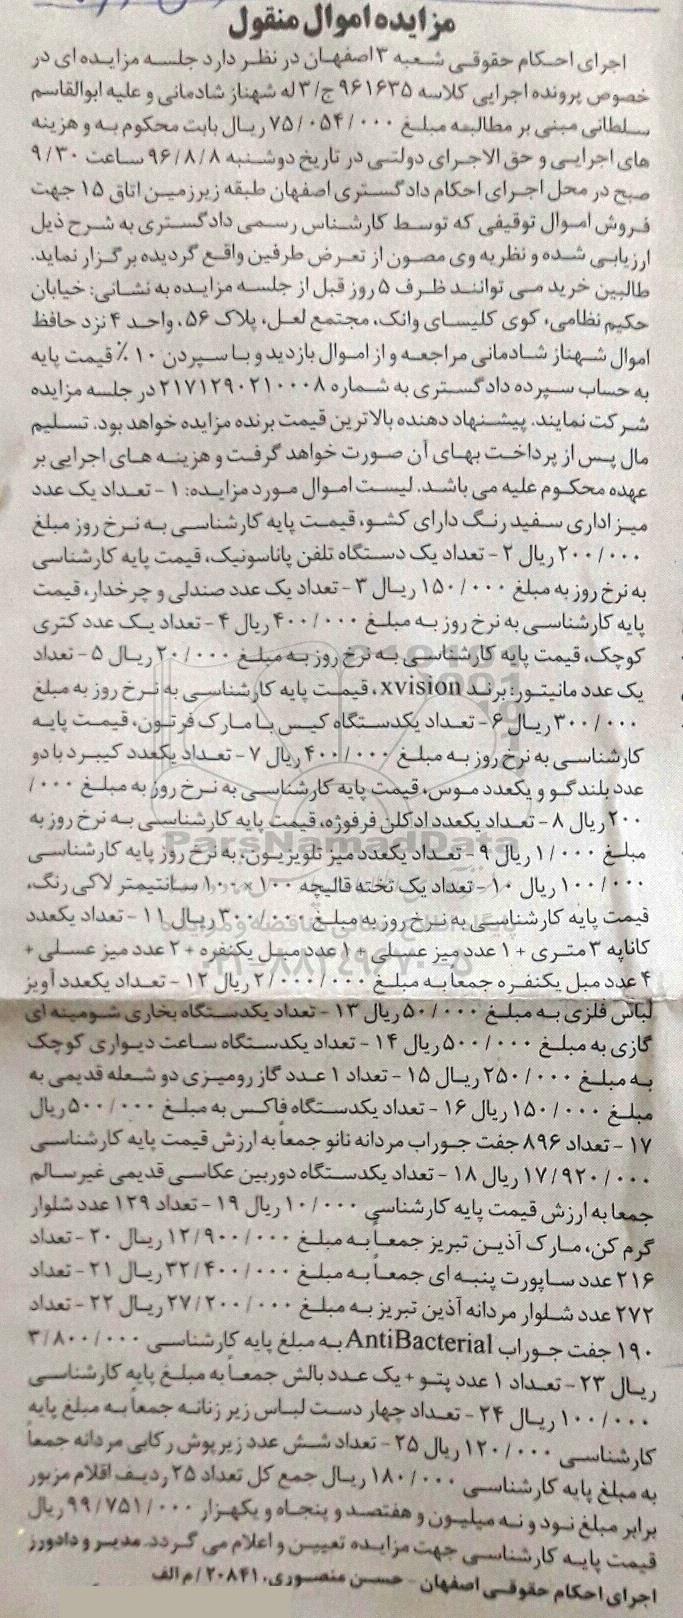 مزایده اموال منقول
اجرای احکام حقوقی شعبه ۳ اصفهان در نظر دارد جلسه مزایده ای در
خصوص پرونده اجرایی کلاسه ۹۶۱۶۳۵ ج/۳ له شهناز شادمانی و علیه ابوالقاسم
سلطانی مبنی بر مطالبه مبلغ ۷۵/۰۵۴/۰۰۰ ریال بابت محکوم به و هزینه
های اجرایی و حق الاجرای دولتی در تاریخ دوشنبه ۹۶/۸/۸ ساعت ۹/۳۰
صبح در محل اجرای احکام دادگستری اصفهان طبقه زیرزمین اتاق ۱۵ جهت
فروش اموال توقیفی که توسط کارشناس رسمی دادگستری به شرح ذیل
ارزیابی شده و نظریه وی مصون از تعرض طرفین واقع گردیده برگزار نماید.
طالبین خرید می توانند ظرف ۵ روز قبل از جلسه مزایده به نشانی: خیابان
حکیم نظامی، کوی کلیسای وانک، مجتمع لعل، پلاک ۵۶، واحد ۴ نزد حافظ
اموال شهناز شادمانی مراجعه و از اموال بازدید و با سپردن ۱۰٪ قیمت پایه
به حساب سپرده دادگستری به شماره ۲۱۷۱۲۹۰۲۱۰۰۰۸ در جلسه مزایده
شرکت نمایند. پیشنهاد دهنده بالاترین قیمت برنده مزایده خواهد بود. تسلیم
مال پس از پرداخت بهای آن صورت خواهد گرفت و هزینه های اجرایی بر
عهده محکوم علیه می باشد. لیست اموال مورد مزایده: ۱ - تعداد یک عدد
میز اداری سفید رنگ دارای کشو، قیمت پایه کارشناسی به نرخ روز مبلغ
۲۰۰/۰۰۰ ریال ۲ - تعداد یک دستگاه تلفن پاناسونیک، قیمت پایه کارشناسی
به نرخ روز به مبلغ ۱۵۰/۰۰۰ ریال ۳ - تعداد یک عدد صندلی و چرخدار، قیمت
پایه کارشناسی به نرخ روز به مبلغ ۴۰۰/۰۰۰ ریال ۴ - تعداد یک عدد کتری
کوچک، قیمت پایه کارشناسی به نرخ روز به مبلغ ۲۰/۰۰۰ ریال ۵ - تعداد
یک عدد مانیتور: برند xvision، قیمت پایه کارشناسی به نرخ روز به مبلغ
۳۰۰/۰۰۰ ریال ۶ - تعداد یکدستگاه کیس با مارک فرتون، قیمت پایه
کارشناسی به نرخ روز به مبلغ ۴۰۰/۰۰۰ ریال ۷ - تعداد یکعدد کیبرد با دو
عدد بلندگو و یکعدد موس، قیمت پایه کارشناسی به نرخ روز به مبلغ ۰۰۰/
۲۰۰ ریال ۸ - تعداد یکعدد ادکلن فرفوژه، قیمت پایه کارشناسی به نرخ روز به
مبلغ ۱/۰۰۰ ریال ۹ - تعداد یکعدد میز تلویزیون، به نرخ روز پایه کارشناسی
۱۰۰/۰۰۰ ریال ۱۰ - تعداد یک تخته قالیچه ۱۰۰×۱۰۰ سانتیمتر لاکی رنگ،
قیمت پایه کارشناسی به نرخ روز به مبلغ ۳۰۰/۰۰۰ ریال ۱۱ - تعداد یکعدد
کاناپه ۳ متری + ۱ عدد میز عسلی + ۱ عدد مبل یکنفره + ۲ عدد میز عسلی +
۴ عدد مبل یکنفره جمعا به مبلغ ۲/۰۰۰/۰۰۰ ریال ۱۲ - تعداد یکعدد آویز
لباس فلزی به مبلغ ۵۰/۰۰۰ ریال ۱۳ - تعداد یکدستگاه بخاری شومینه ای
گازی به مبلغ ۵۰۰/۰۰۰ ریال ۱۴ - تعداد یکدستگاه ساعت دیواری کوچک
به مبلغ ۲۵۰/۰۰۰ ریال ۱۵ - تعداد ۱ عدد گاز رومیزی دو شعله قدیمی به
مبلغ ۱۵۰/۰۰۰ ریال ۱۶ - تعداد یکدستگاه فاکس به مبلغ ۵۰۰/۰۰۰ ریال
۱۷ - تعداد ۸۹۶ جفت جوراب مردانه نانو جمعاً به ارزش قیمت پایه کارشناسی
۱۷/۹۲۰/۰۰۰ ریال ۱۸ - تعداد یکدستگاه دوربین عکاسی قدیمی غیرسالم
جمعا به ارزش قیمت پایه کارشناسی ۱۰/۰۰۰ ریال ۱۹ - تعداد ۱۲۹ عدد شلوار
گرم کن، مارک آذین تبریز جمعاً به مبلغ ۱۲/۹۰۰/۰۰۰ ریال ۲۰ - تعداد
۲۱۶ عدد ساپورت پنبه ای جمعاً به مبلغ ۳۲/۴۰۰/۰۰۰ ریال ۲۱ - تعداد
۲۷۲ عدد شلوار مردانه آذین تبریز به مبلغ ۲۷/۲۰۰/۰۰۰ ریال ۲۲ - تعداد
۱۹۰ جفت جوراب AntiBacterial به مبلغ پایه کارشناسی ۳/۸۰۰/۰۰۰
ریال ۲۳ - تعداد ۱ عدد پتو + یک عدد بالش جمعاً به مبلغ پایه کارشناسی
۱۰۰/۰۰۰ ریال ۲۴ - تعداد چهار دست لباس زیر زنانه جمعاً به مبلغ پایه
کارشناسی ۱۲۰/۰۰۰ ریال ۲۵ - تعداد شش عدد زیرپوش رکابی مردانه جمعاً
به مبلغ پایه کارشناسی ۱۸۰/۰۰۰ ریال جمع کل تعداد ۲۵ ردیف اقلام مزبور
برابر مبلغ نود و نه میلیون و هفتصد و پنجاه و یکهزار ۹۹/۷۵۱/۰۰۰ ریال
قیمت پایه کارشناسی جهت مزایده تعیین و اعلام می گردد. مدیر و دادورز
اجرای احکام حقوقی اصفهان - حسن منصوری، ۲۰۸۴۱ / م الف
ParsNamadData